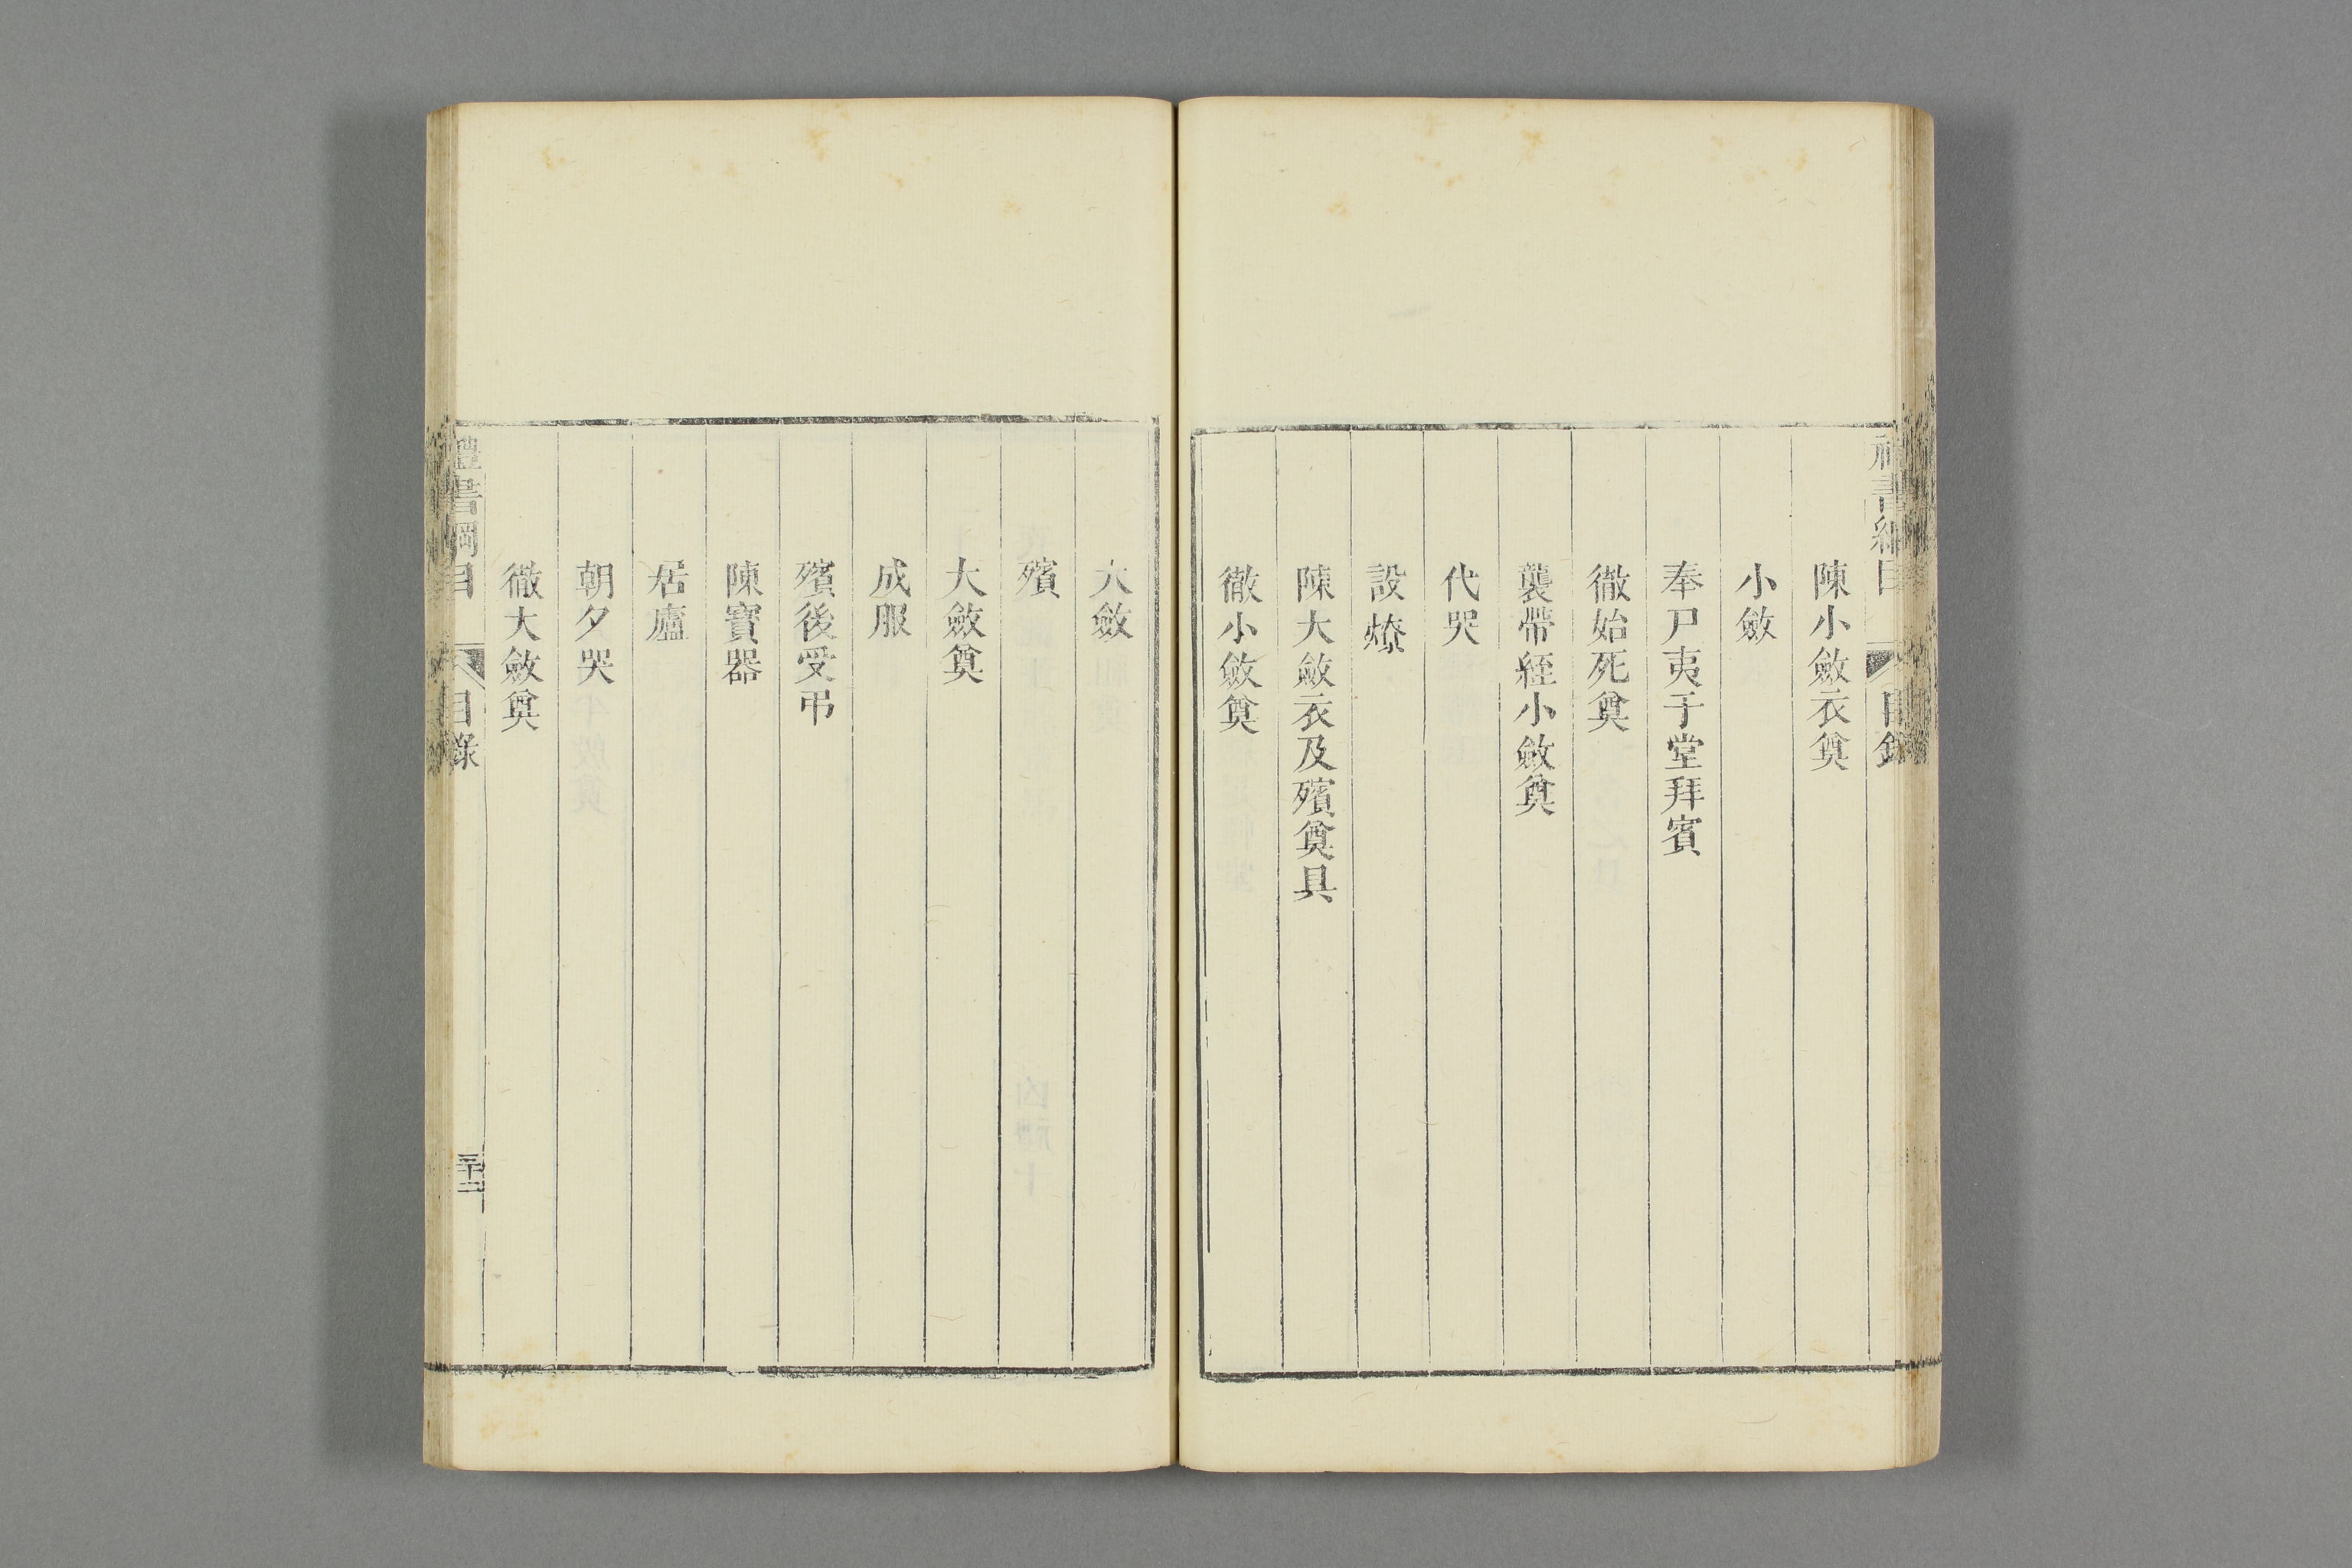 陳小斂衣奠
小斂
奉尸夷于堂拜賓
徹始死奠
襲帶絰小斂奠
代哭
設燎
陳大斂衣及殯奠具
徹小斂奠
大斂
殯
大斂奠
成服
殯後受弔
陳寶器
居廬
朝夕哭
徹大斂奠
禮書綱目
目錄
三十二